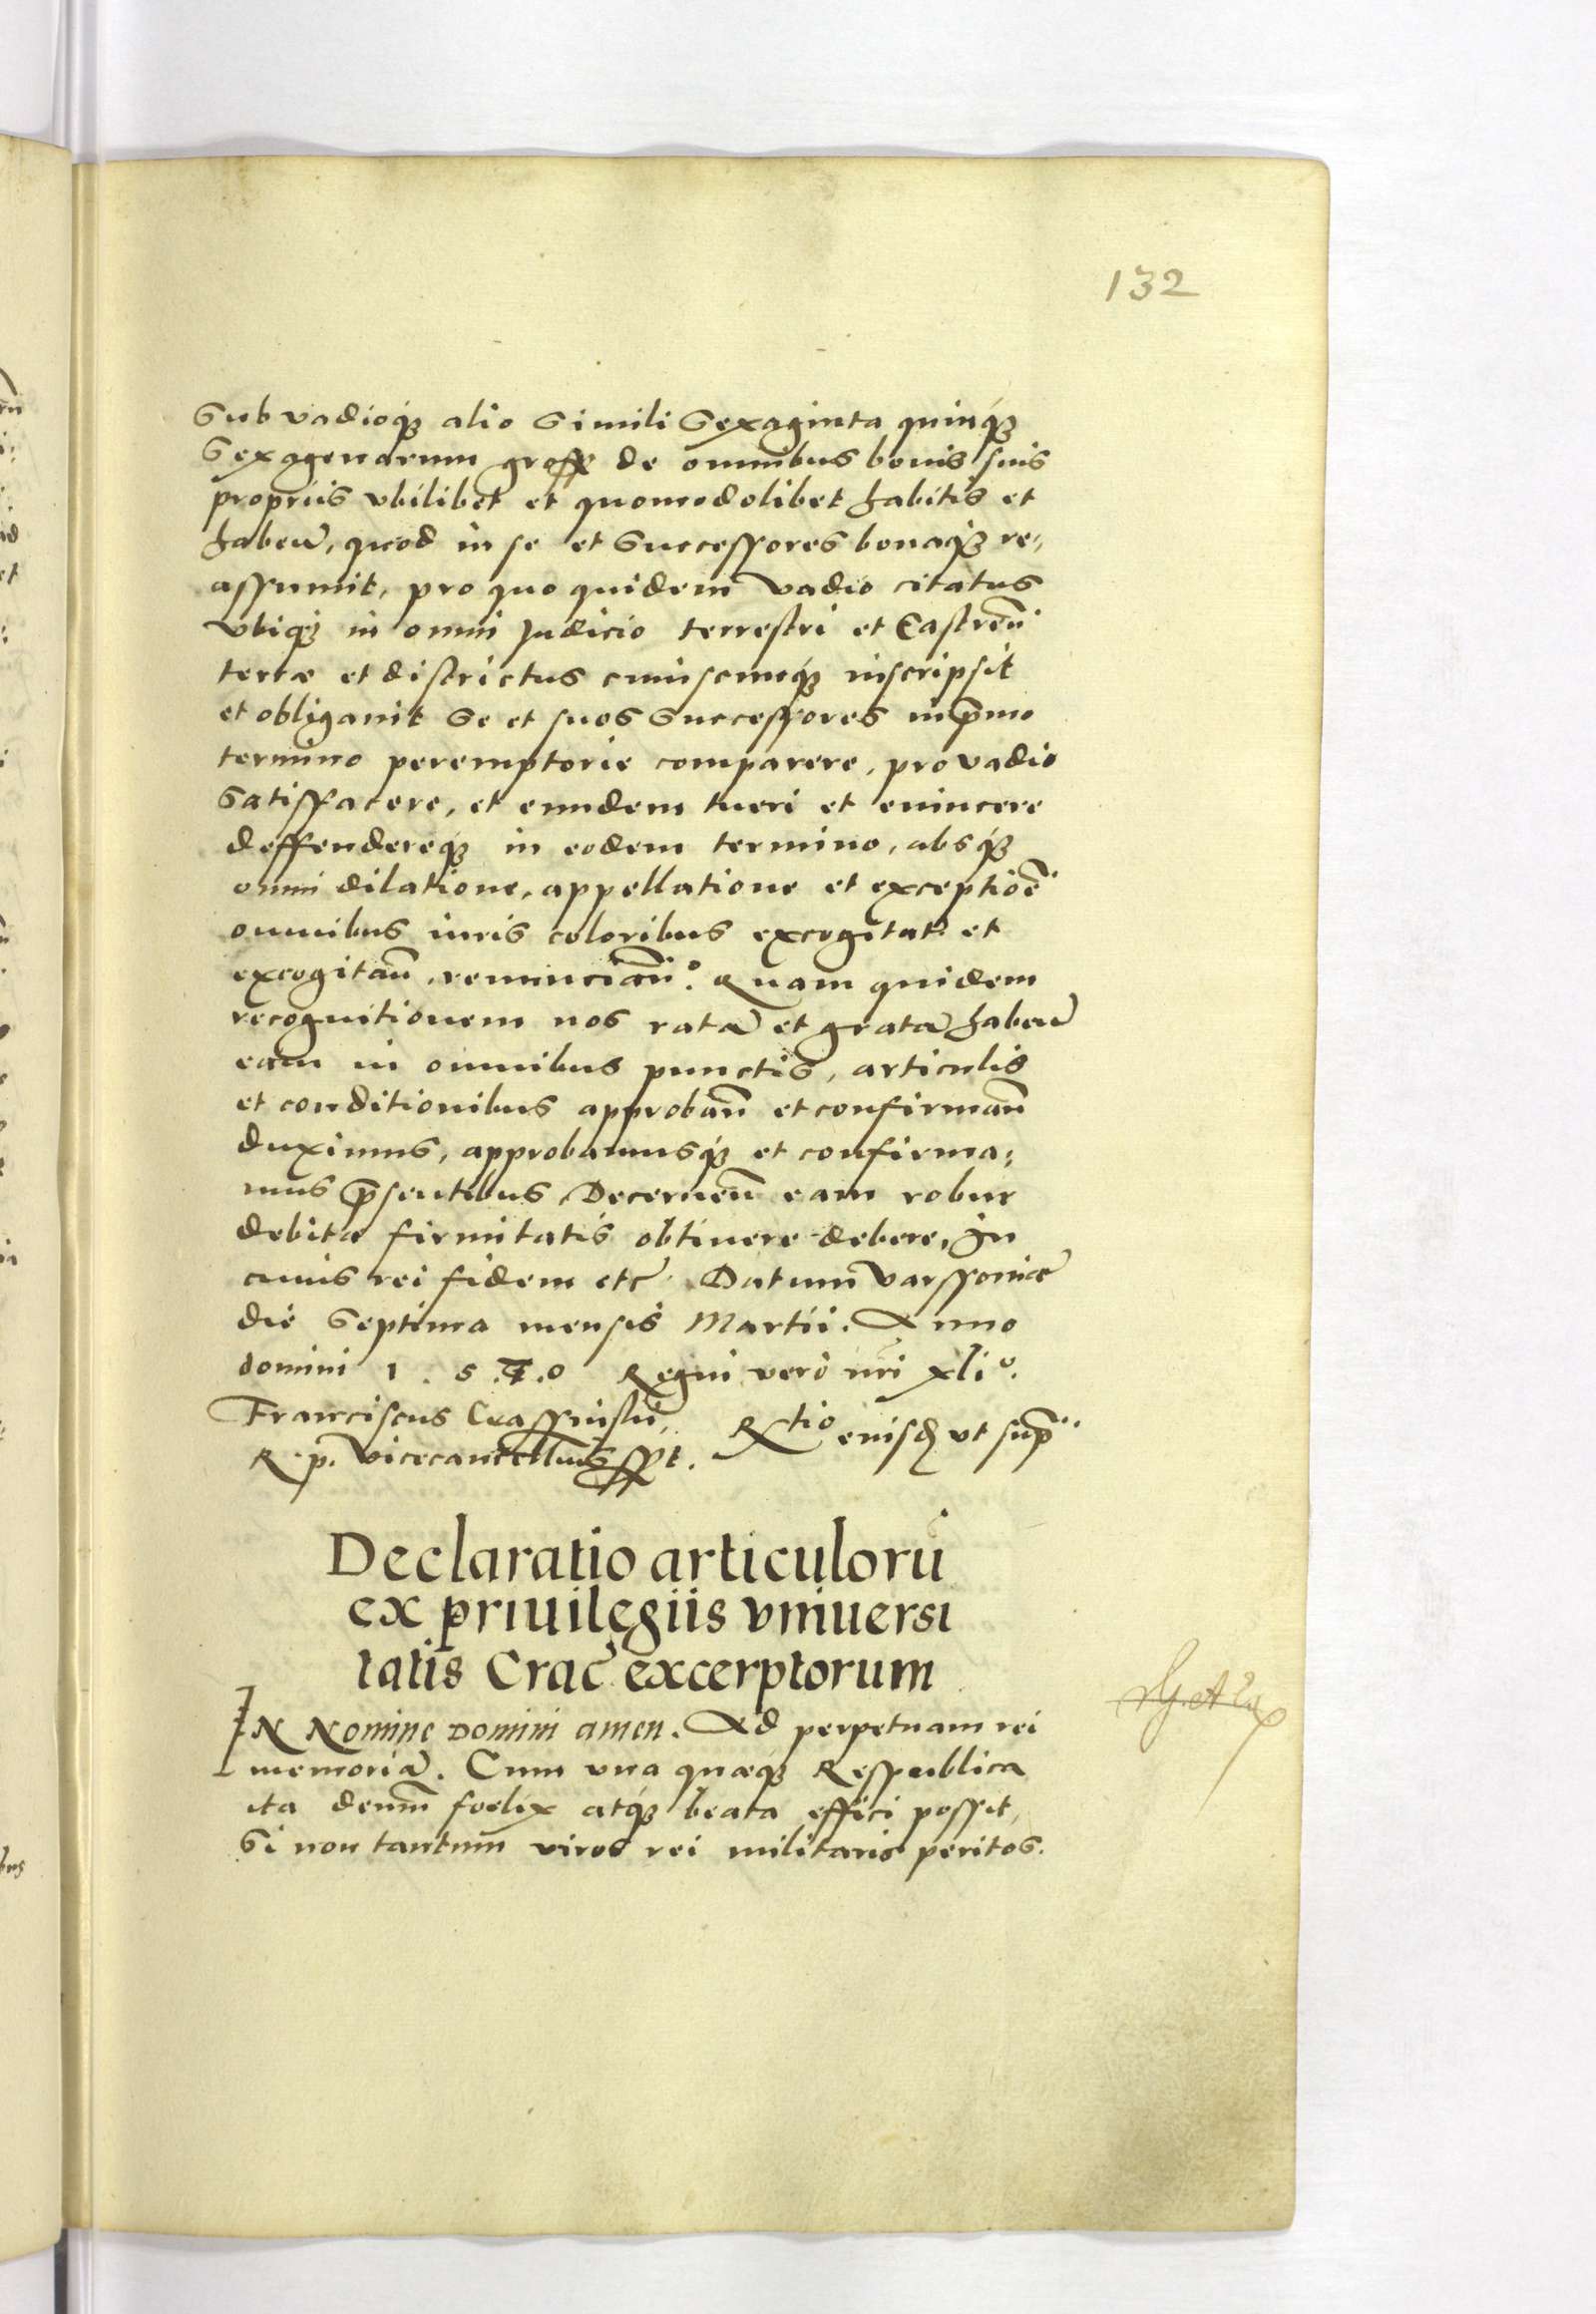 132
Sub vadioqꝫ alio Simili Sexaginta quinqꝫ
Sexagenarum gross̄ de omnibus bonis suis
propriis vbilibet et quomodolibet habitis et
haben̄, quod in se et Successores bonaqꝫ re,
assumit, pro quo quidem vadio citatus
vbiqꝫ in omni Judicio terrestri et Castren̄
terræ et districtus cuiuscunqꝫ inscripsit
et obligauit Se et suos Successores in p̄mo
termino peremptorie comparere, pro vadio
Satisfacere, et eundem tueri et euincere
deffendereqꝫ in eodem termino, absqꝫ
omni dilatione, appellatione et exceptioē
omnibus iuris coloribus excogitat̄ et
excogitan̄, renuncian̄. Quam quidem
recognitionem nos ratā et gratā haben̄
eam in omnibus punctis, articulis
et conditionibus approban̄ et confirman̄
duximus, approbamusqꝫ et confirma,
mus p̄sentibus Decernen̄ eam robur
debitæ firmitatis obtinere debere, In
cuius rei fidem etc̄ Datum Varssouiæ
die Septima mensis Martii. Anno
domini 1.5.4.0 Regni vero nr̄i xliᵒ.
Franciscus
R. p. Vicecancellarius sspt. Rtio eiusd ut sup̄
Declaratio articulorū
ex priuilegiis vniuersi
tatis Crac̄ excerptorum
IN Nomine Domini amen. Ad perpetuam rei
memoriā. Cum vna quæqꝫ Respublica
ita demū foelix atqꝫ beata effici possit,
Si non tantum viros rei militaris peritos.